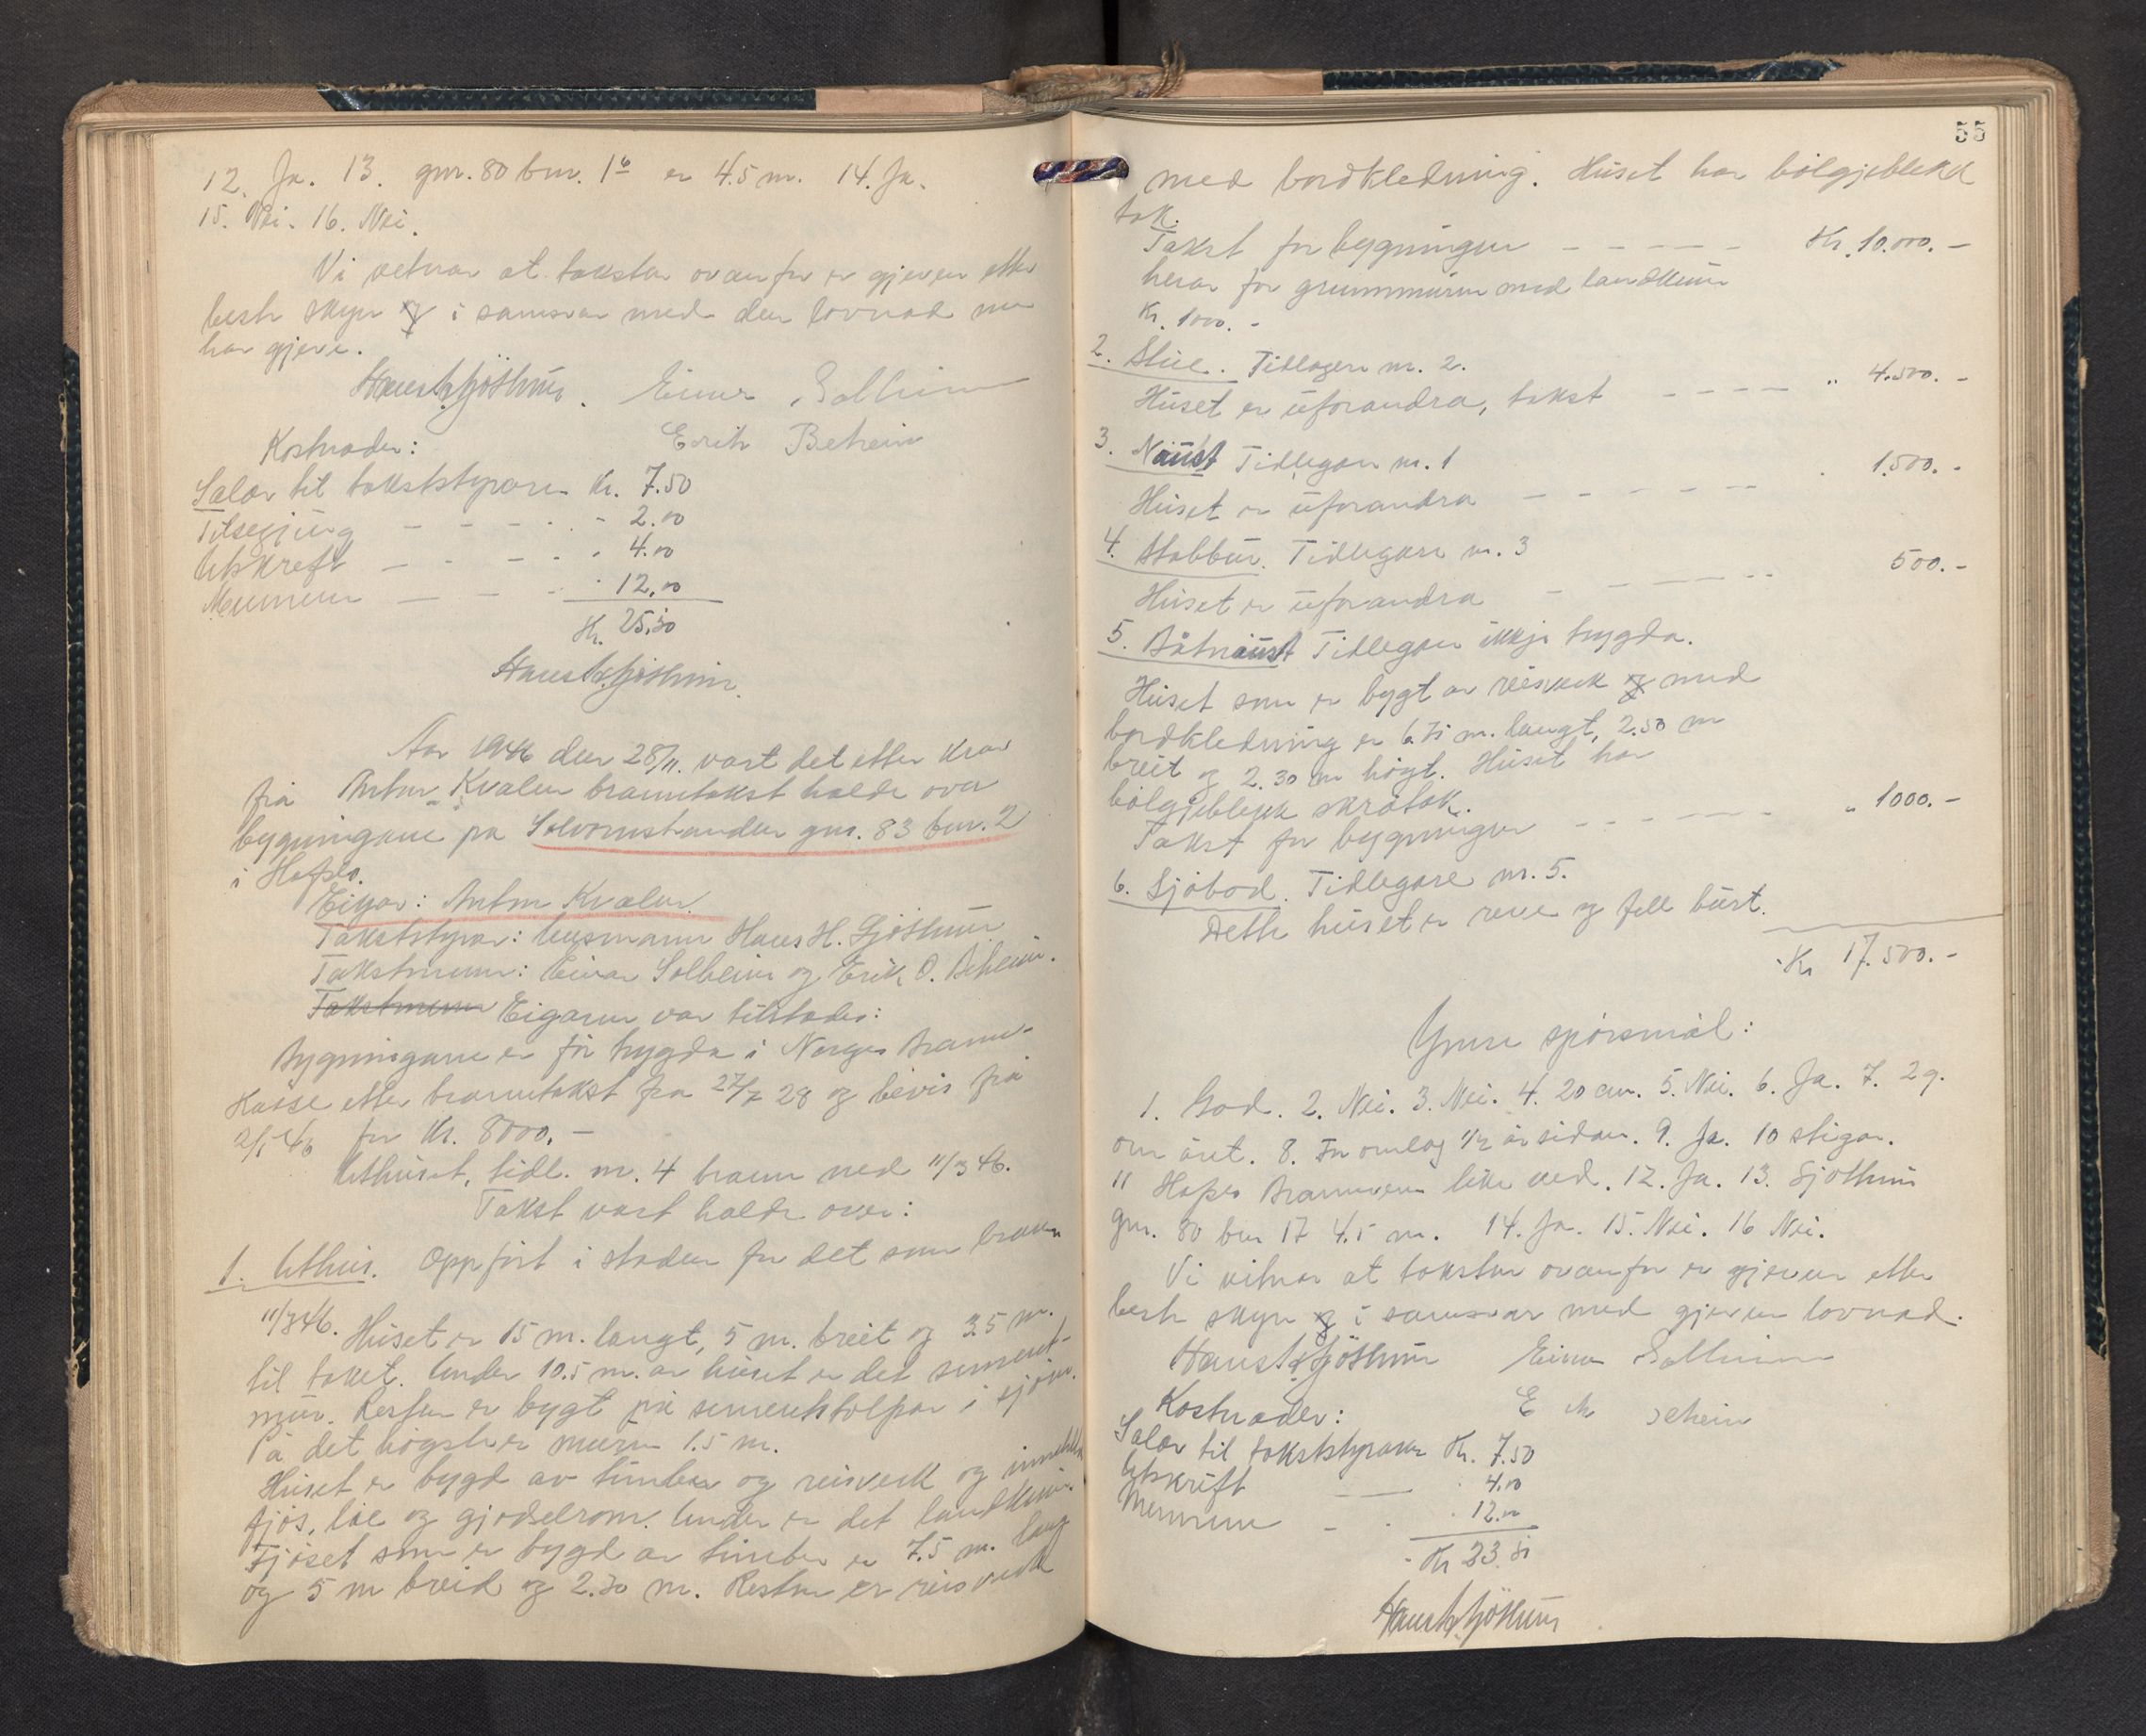 12. Ja. 13. gnr. 80 bnr. 16 er 4.5 m. 14. Ja.
15. Nei. 16. Nei.
Vi vitnar at takstar ovanfor er gjeven etter
beste skyn og i samsvar med den lovnad me
har gjeve.
Hans H. Sjøthun. Einar Solheim
Erik Beheim
Kostnader:
Salær til takststyraren Kr. 7.50
Tilseijing - - - - - 2.00
Utskrift - - - - - 4.00
Mennene - - - - 12.00
Kr. 25.50
Hans H. Sjøthun.
Aar 1946 den 28/11. vart det etter krav
frå Anton Kvalen branntakst halde over
bygningane på Solvornstranden gnr. 83 bnr. 2
i Hafslo.
Eigar: Anton Kvalen.
Takststyrar: Lensmann Hans H. Sjøthun
Takstmenn: Einar Solheim og Erik O. Beheim.
Takstmenn Eigaren var tilstades:
Bygningane er før trygda i Norges Brann-
Kasse etter branntakst fra 27/7 28 og bevis frå
2/5 46 for Kr. 8000.-
Uthuset, tidl. nr. 4 brann ned 11/3 46.
Takst vart halde over:
1. Uthus. Oppført i staden for det som brann
11/3 46. Huset er 15 m. langt, 5 m. breit og 3.5 m.
til taket. Under 10.5 m. av huset er det sement-
mur. Resten er bygt på sementstolpar i sjøen.
På det høgste er muren 1.5 m.
Huset er bygd av timber og reisverk og
fjøs, løe og gjødselrom. Under er det landkum.
Fjøset som er bygd av timber er 7.5 m. lang
og 5 m breid og 2.30 m. Resten er reisverk
55
med bordkledning. Huset har bølgjeblekk
tak.
Takst for bygningen - - - - - Kr. 10.000.-
herav for grunnmuren med landkum
Kr. 1000.-
2. Stue. Tidlegare nr. 2.
Huset er uforandra, takst - - - - " 4.500.-
3. Naust Tidlegare nr. 1
Huset er uforandra - - - - - - 1.500.-
4. Stabbur. Tidlegare nr. 3
Huset er uforandra - - - - - 500.-
5. Båtnaust Tidlegare ikkje trygda.
Huset som er bygt av reisverk og med
bordkledning er 6.75 m. langt, 2.50 m
breit og 2.30 m høgt. Huset har
bølgjeblekk skråtak.
Takst for bygningen - - - - - - " 1000.-
6. Sjøbod. Tidlegare nr. 5.
Dette huset er reve og fell burt.
Kr 17.500.-
Ymse spørsmål:
1. God. 2. Nei. 3. Nei. 4. 20 cm. 5. Nei. 6. Ja. 7. 2 g.
om året. 8. For omlag 1/2 år sidan. 9. Ja. 10 stigar.
11 Hafslo Brannvern like ved. 12. Ja. 13. Sjøthun
gnr. 80 bnr 17 4.5 m. 14. Ja. 15. Nei. 16 Nei.
Vi vitnar at takstar ovanfor er gjeven etter
beste skyn og i samsvar med gjeven lovnad.
Hans H. Sjøthun Einar Solheim
Kostnader:
Salær til takststyraren Kr. 7.50
Utskrift - - 4.00
Mennene - - 12.00
Kr 23.50
Hans H. Sjøthun